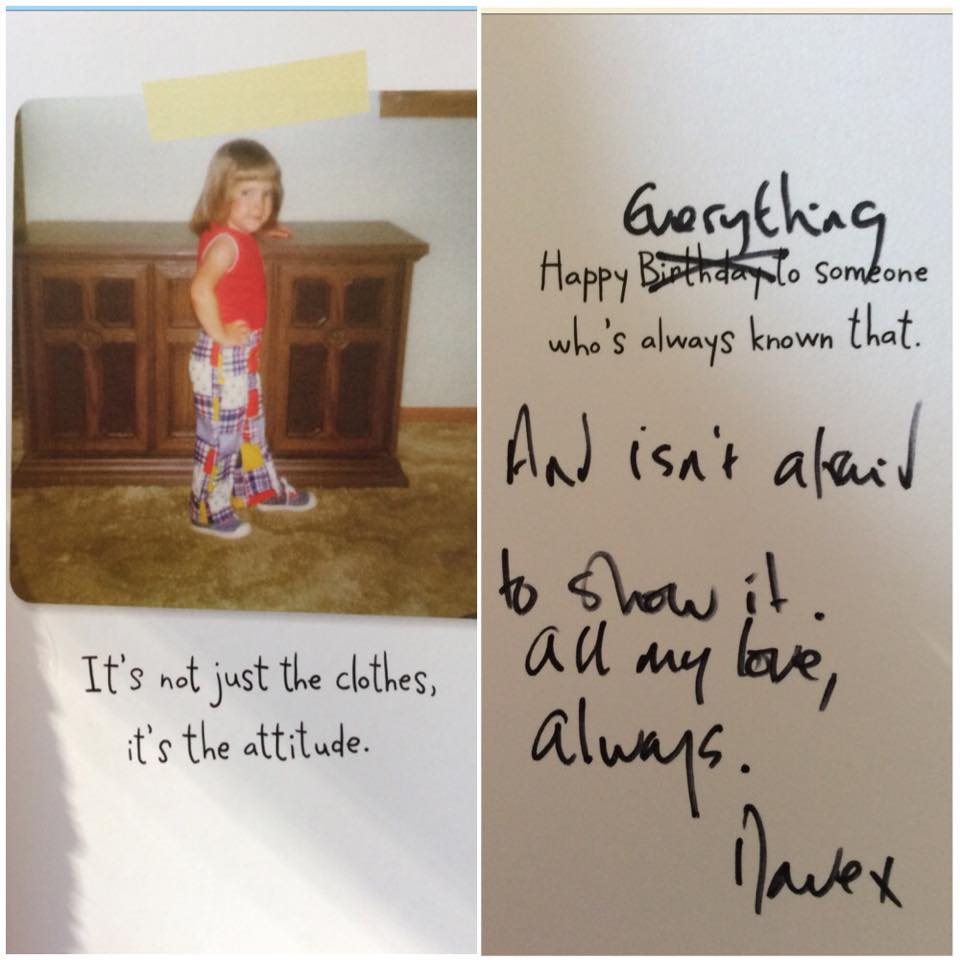 It's not just the clothes,
it's the attitude.
Everything
Happy Birthday to someone
who's always known that.
And isn't afraid
to show it.
all my love,
always.
Dave x